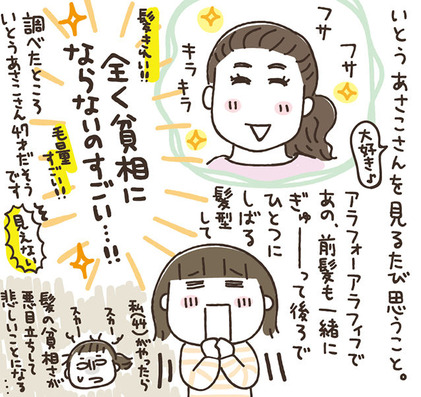 いとうあさこさんを見るたび思うこと。
大好き♪
フサ
フサ
キラ
キラ
アラフォーアラフィフで
あの、前髪も一緒に
ぎゅーーって後ろで
ひとつに
しばる
髪型
して
髪きれい!!
全く貧相に
ならないのすごい…!!
毛量
すごい!!
調べたところ
いとうあさこさん47才だそう
です
見えない
私(41)がやったら
髪の貧相さが
悪目立ちして
悲しいことになる
スカー
スカー